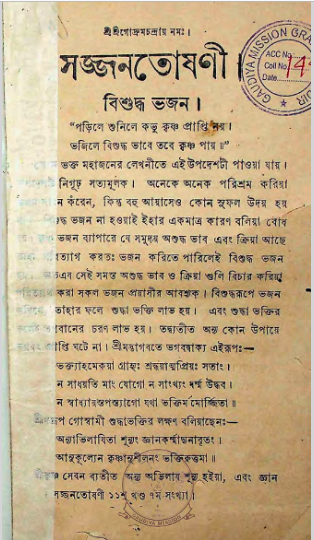 শ্রীশ্রীগোদ্রুমচন্দ্রায় নমঃ।
GAUDIYA MISSION
ACC No
Coll No
Date
সজ্জনতোষণী।
বিশুদ্ধ ভজন।
"পড়িলে শুনিলে কভু কৃষ্ণ প্রাপ্তি নয়।
ভজিলে বিশুদ্ধ ভাবে তবে কৃষ্ণ পায়॥"
ভক্ত মহাজনের লেখনীতে এই উপদেশটী পাওয়া যায়।
নিগূঢ় সত্যমূলক। অনেকে অনেক পরিশ্রম করিয়া
করেন, কিন্তু বহু আয়াসেও কোন সুফল উদয় হয়
বিশুদ্ধ ভজন না হওয়াই ইহার একমাত্র কারণ বলিয়া বোধ
ভজন ব্যাপারে যে সমুদয় অশুদ্ধ ভাব এবং ক্রিয়া আছে
ত্যাগ করতঃ ভজন করিতে পারিলেই বিশুদ্ধ ভজন
অতএব সেই সমস্ত অশুদ্ধ ভাব ও ক্রিয়া গুলি বিচার করিয়া
করা সকল ভজন প্রয়াসীর আবশ্যক। বিশুদ্ধরূপে ভজন
তাঁহার ফলে শুদ্ধা ভক্তি লাভ হয়। এবং শুদ্ধা ভক্তির
ভগবানের চরণ লাভ হয়। তদ্ব্যতীত অন্য কোন উপায়ে
প্রাপ্তি ঘটে না। শ্রীমদ্ভাগবতে ভগবদ্বাক্য এইরূপঃ—
ভক্ত্যাহমেকয়া গ্রাহ্যঃ শ্রদ্ধয়াত্মপ্রিয়ঃ সতাং।
ন সাধয়তি মাং যোগো ন সাংখ্যং ধর্ম্ম উদ্ধব।
ন স্বাধ্যায়স্তপস্ত্যাগো যথা ভক্তির্মমোর্জ্জিতা॥
শ্রীরূপ গোস্বামী শুদ্ধভক্তির লক্ষণ বলিয়াছেনঃ—
অন্যাভিলাষিতা শূন্যং জ্ঞানকর্ম্মাদ্যনাবৃতং।
আনুকূল্যেন কৃষ্ণানুশীলনং ভক্তিরুত্তমা॥
সেবন ব্যতীত অন্য অভিলাষ শূন্য হইয়া, এবং জ্ঞান
সজ্জনতোষণী ১১শ খণ্ড ৭ম সংখ্যা।